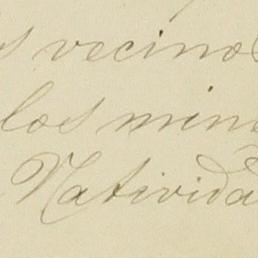 s vecinos
los min
Nativida